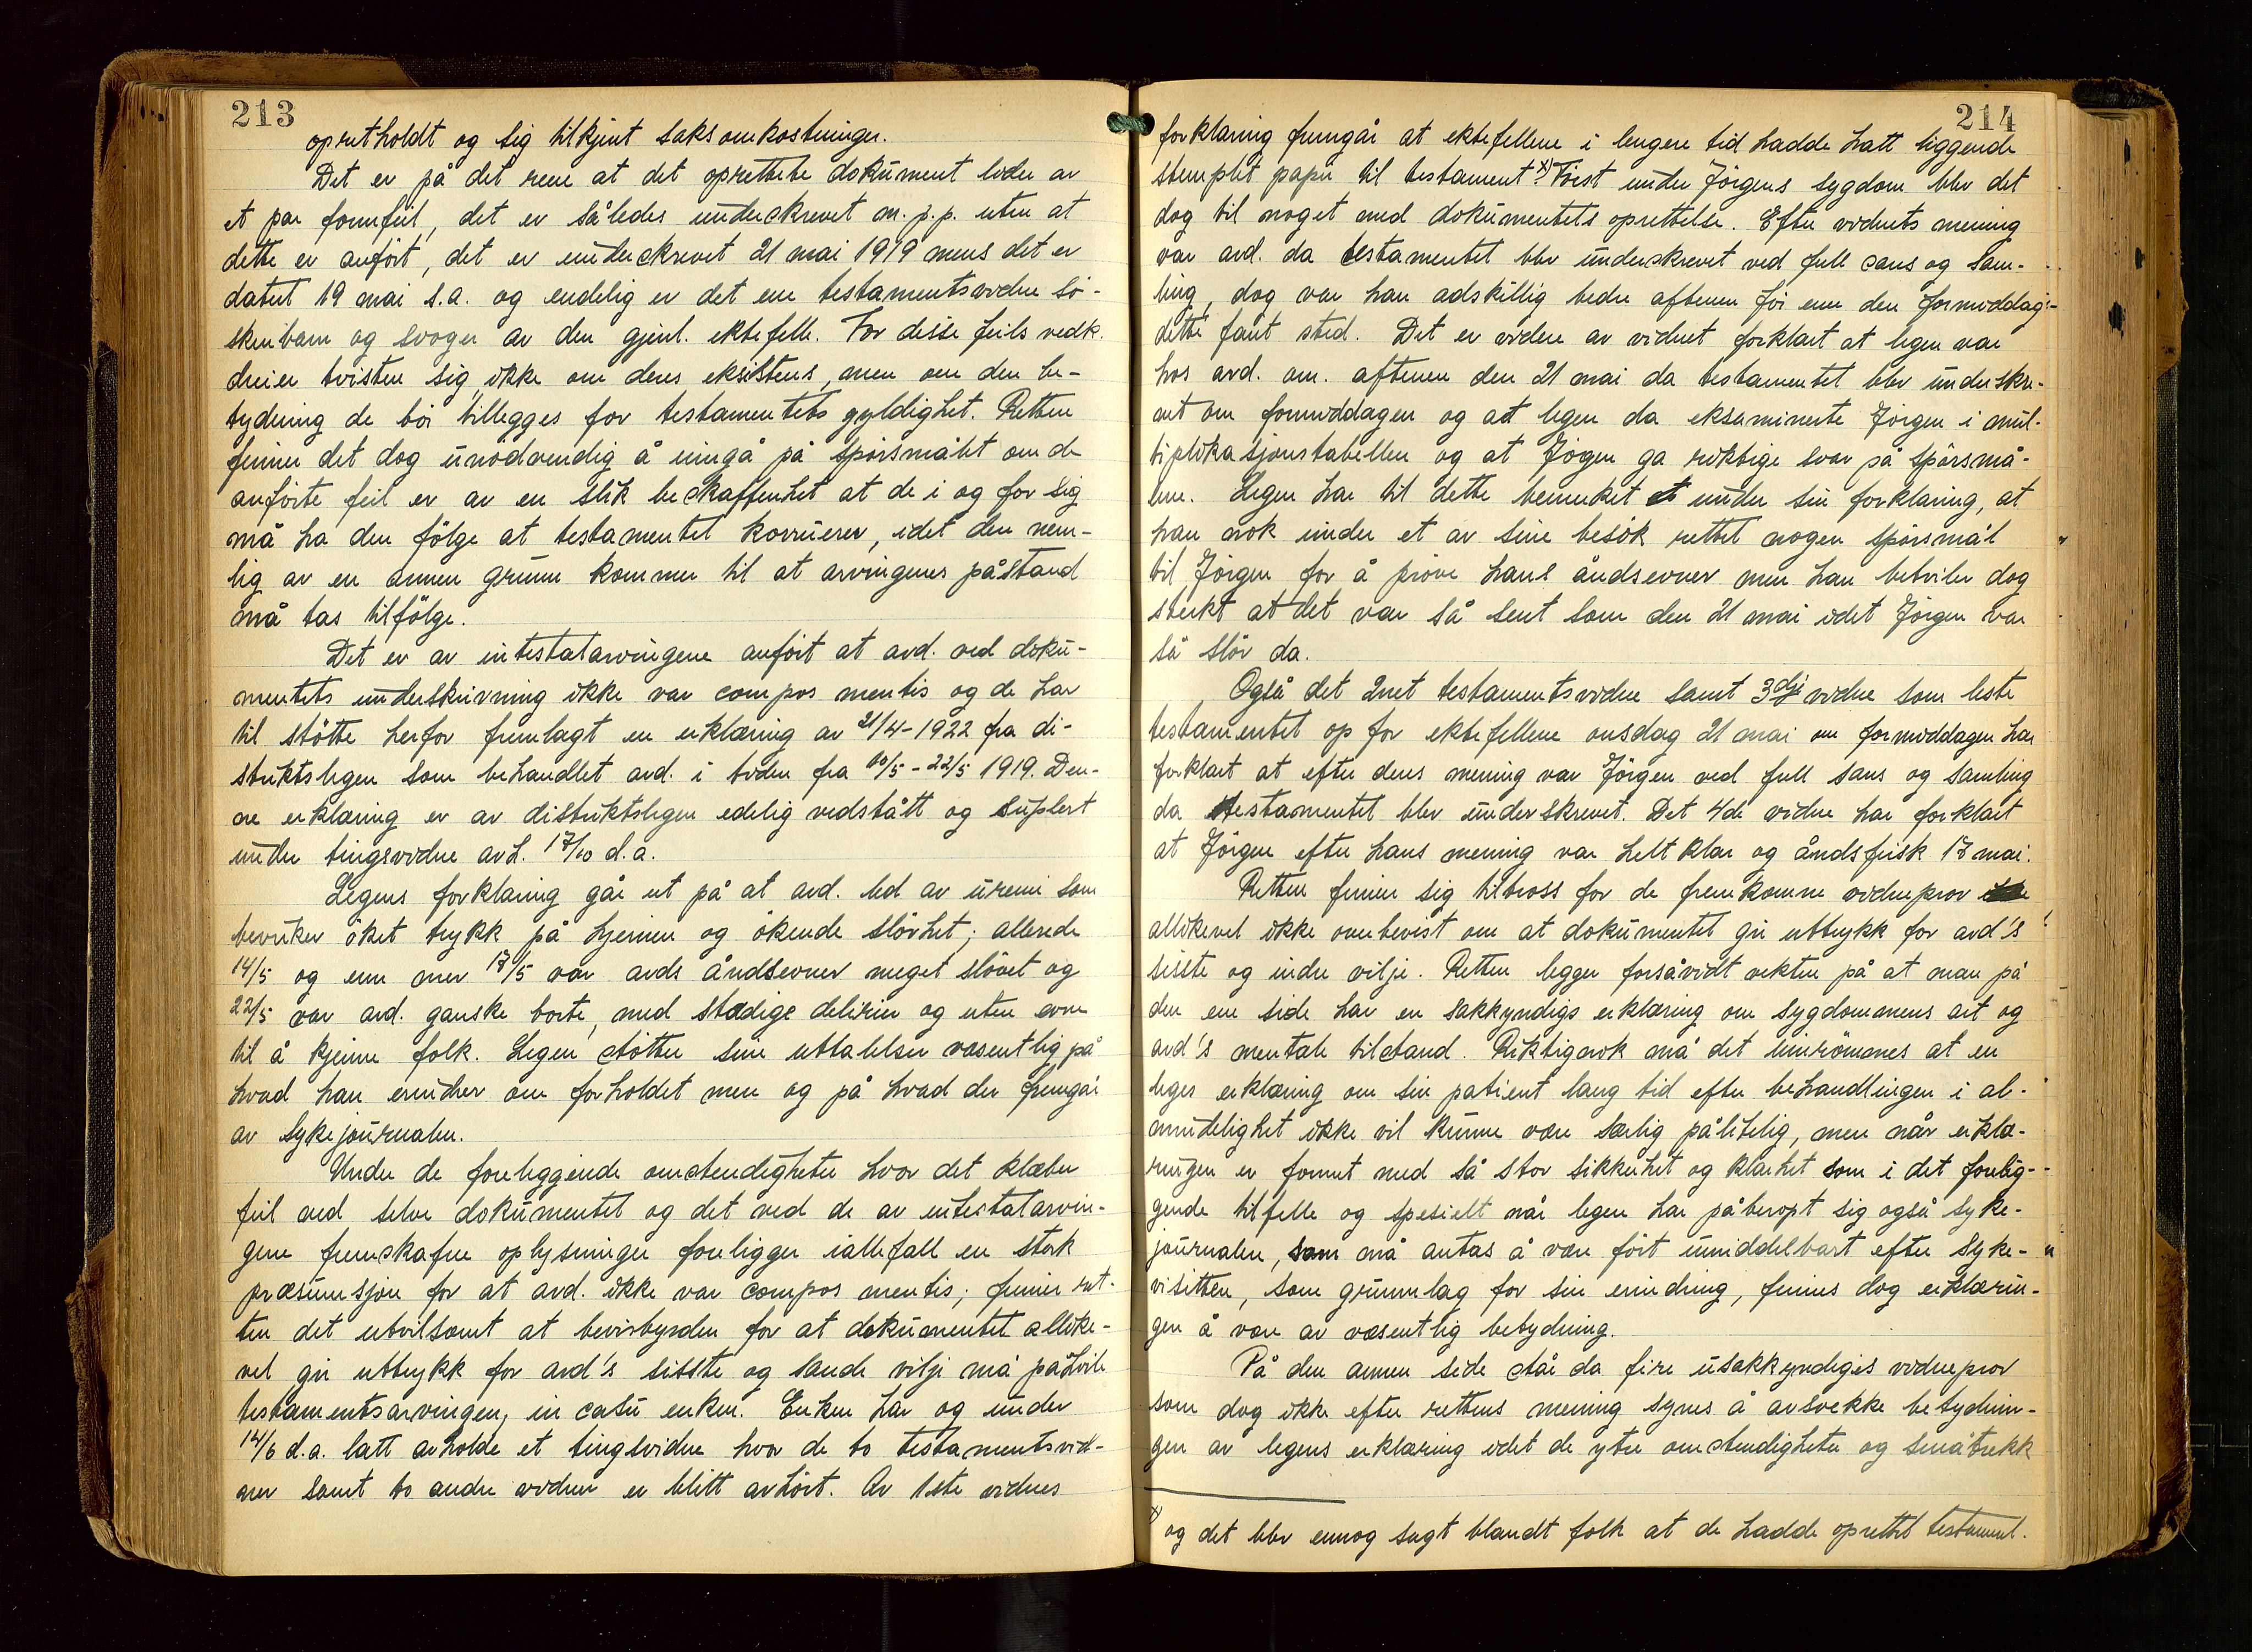 213
opretholdt og sig tilkjent saksomkostninger.
Det er på det rene at det oprettete dokument lider av
et par formfeil, det er således underskrevet m.p.p. uten at
dette er anført, det er underskrevet 21 mai 1919 mens det er
datert 19 mai s.a. og endelig er det ene testamentsvidne sø-
skenbarn og svoger av den gjenl. ektefelle. For disse feils vedk.
dreier tvisten sig ikke om deres eksistens, men om den be-
tydning de bør tillegges for testamentets gyldighet. Retten
finner det dog unødvendig å inngå på spørsmålet om de
anførte feil er av en slik beskaffenhet at de i og for sig
må ha den følge at testamentet korruerer, idet den nem-
lig av en annen grunn kommer til at arvingenes påstand
må tas tilfølge.
Det er av intestatarvingene anført at avd. ved doku-
mentets underskrivning ikke var compos mentis og de har
til støtte herfor fremlagt en erklæring av 21/4-1922 fra di-
striktslegen som behandlet avd. i tiden fra 10/5-22/5 1919. Den-
ne erklæring er av distriktslegen edelig vedstått og suplert
under tingsvidne avh. 17/10 d.a.
Legens forklaring går ut på at avd. led av uremi som
bevirker øket trykk på hjernen og økende sløvhet; allerede
14/5 og enn mer 17/5 var avds åndsevner meget sløvet og
22/5 var avd. ganske borte, med stadige delirier og uten evne
til å kjenne folk. Legen støtter sine uttalelser væsentlig på
hvad han erindrer om forholdet men og på hvad der fremgår
av sykejournalen.
Under de foreliggende omstendigheter hvor det klæber
feil ved selve dokumentet og det ved de av intestatarvin-
gene fremskafne oplysninger foreligger iallefall en sterk
præsumsjon for at avd. ikke var compos mentis; finner ret-
ten det utvilsomt at bevisbyrden for at dokumentet allike-
vel gir uttrykk for avd's sisste og sande vilje må påhvile
testamentsarvingen, in casu enken. Enken har og under
14/6 d.a. latt avholde et tingsvidne hvor de to testamentsvid-
ner samt to andre vidner er blitt avhørt. Av 1ste vidnes
214
forklaring fremgår at ektefellene i lengere tid hadde hatt liggende
stemplet papir til testament. x) Først under Jørgens sygdom blev det
dog til noget med dokumentets oprettelse. Efter vidnets mening
var avd. da testamentet blev underskrevet ved full sans og sam-
ling, dog var han adskillig bedre aftenen før enn den formiddag
dette fant sted. Det er videre av vidnet forklart at legen var
hos avd. om. aftenen den 21 mai da testamentet blev underskre-
vet om formiddagen og at legen da eksaminerte Jørgen i mul-
tiplikasjonstabellen og at Jørgen ga riktige svar på spørsmå-
lene. Legen har til dette bemerket under sin forklaring, at
han nok under et av sine besøk rettet nogen spørsmål
til Jørgen for å prøve hans åndsevner men han betviler dog
sterkt at det var så sent som den 21 mai idet Jørgen var
så sløv da.
Også det 2net testamentsvidne samt 3dje vidne som leste
testamentet op for ektefellene onsdag 21 mai om formiddagen har
forklart at efter deres mening var Jørgen ved full sans og samling
da testamentet blev underskrevet. Det 4de vidne har forklart
at Jørgen efter hans mening var helt klar og åndsfrisk 17 mai.
Retten finner sig tiltross for de fremkomne vidneprov
allikevel ikke overbevist om at dokumentet gir uttrykk for avd's
sisste og indre vilje. Retten legger forsåvidt vekten på at man på
den ene side har en sakkyndigs erklæring om sygdommens art og
avd's mentale tilstand. Riktignok må det innrømmes at en
leges erklæring om sin patient lang tid efter behandlingen i al-
mindelighet ikke vil kunne være særlig pålitelig, men når erklæ-
ringen er formet med så stor sikkerhet og klarhet som i det forelig-
gende tilfelle og spesielt når legen har påberopt sig også syke-
journalen, som må antas å være ført umiddelbart efter syke-
visitten, som grunnlag for sin erindring, finnes dog erklærin-
gen å være av væsentlig betydning.
På den annen side står da fire usakkyndiges vidneprov
som dog ikke efter rettens mening synes å avsvekke betydnin-
gen av legens erklæring idet de ytre omstendigheter og småtrekk
x) og det blev ennog sagt blandt folk at de hadde oprettet testament.